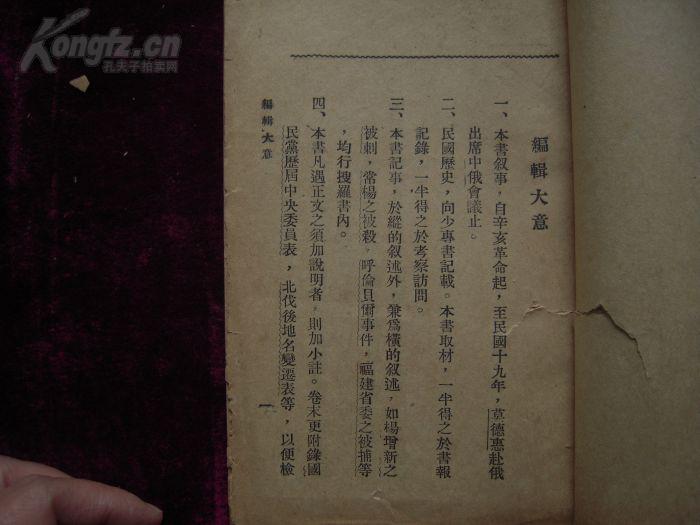 Kongfz.cn
孔夫子拍卖网
編輯大意
一、本書叙事，自辛亥革命起，至民國十九年，莫德惠赴俄
出席中俄會議止。
二、民國歷史，向少專書記載。本書取材，一半得之於書報
記錄，一半得之於考察訪問。
三、本書記事，於縱的叙述外，兼爲橫的叙述，如楊增新之
被刺，常楊之被殺，呼倫貝爾事件，福建省委之被捕等
，均行搜羅書內。
四、本書凡遇正文之須加說明者，則加小註。卷末更附錄國
民黨歷屆中央委員表，北伐後地名變遷表等，以便檢
編輯大意
一